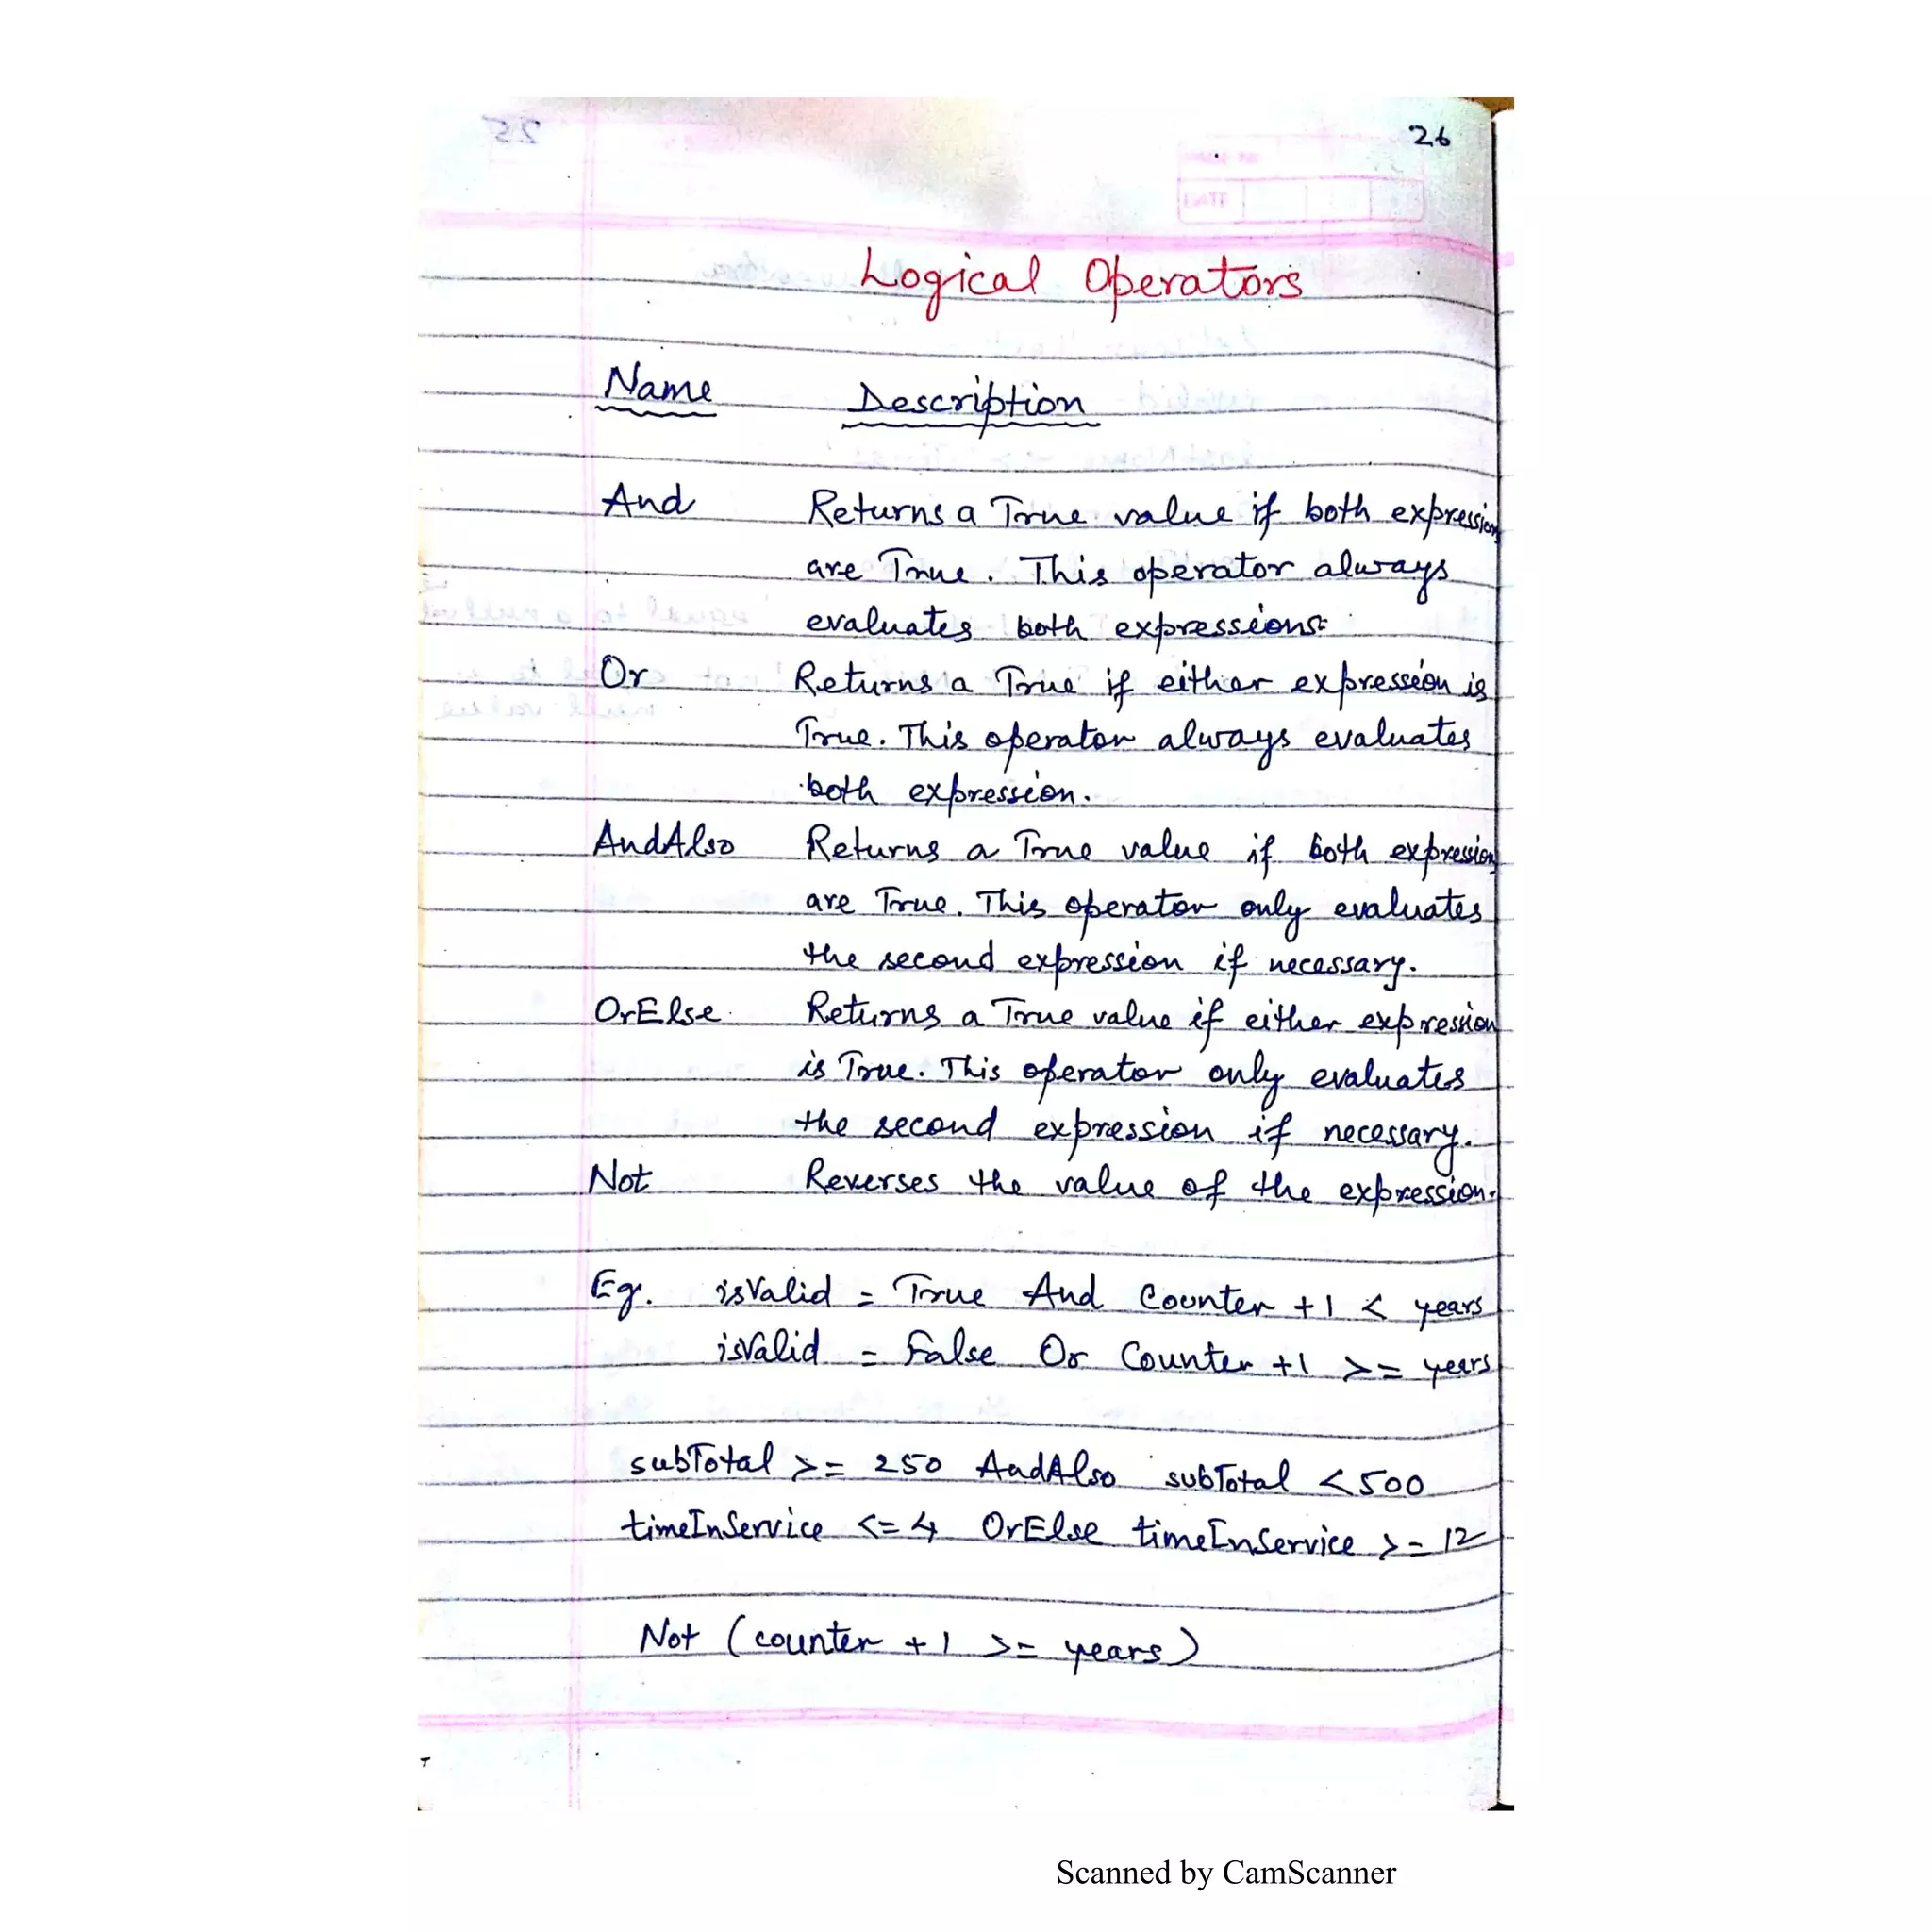 26
Logical Operators
Name Description
And Returns a True value if both expression
are True. This operator always
evaluates both expressions.
Or Returns a True if either expression is
True. This operator always evaluates
both expression.
AndAlso Returns a True value if both expression
are True. This operator only evaluates
the second expression if necessary.
OrElse Returns a True value if either expression
is True. This operator only evaluates
the second expression if necessary.
Not Reverses the value of the expression.
Eg. isValid = True And Counter +1 < years
isValid = False Or Counter +1 >= years
subTotal >= 250 AndAlso subTotal <500
timeInService <= 4 OrElse timeInService >= 12
Not (counter + 1 >= years)
Scanned by CamScanner